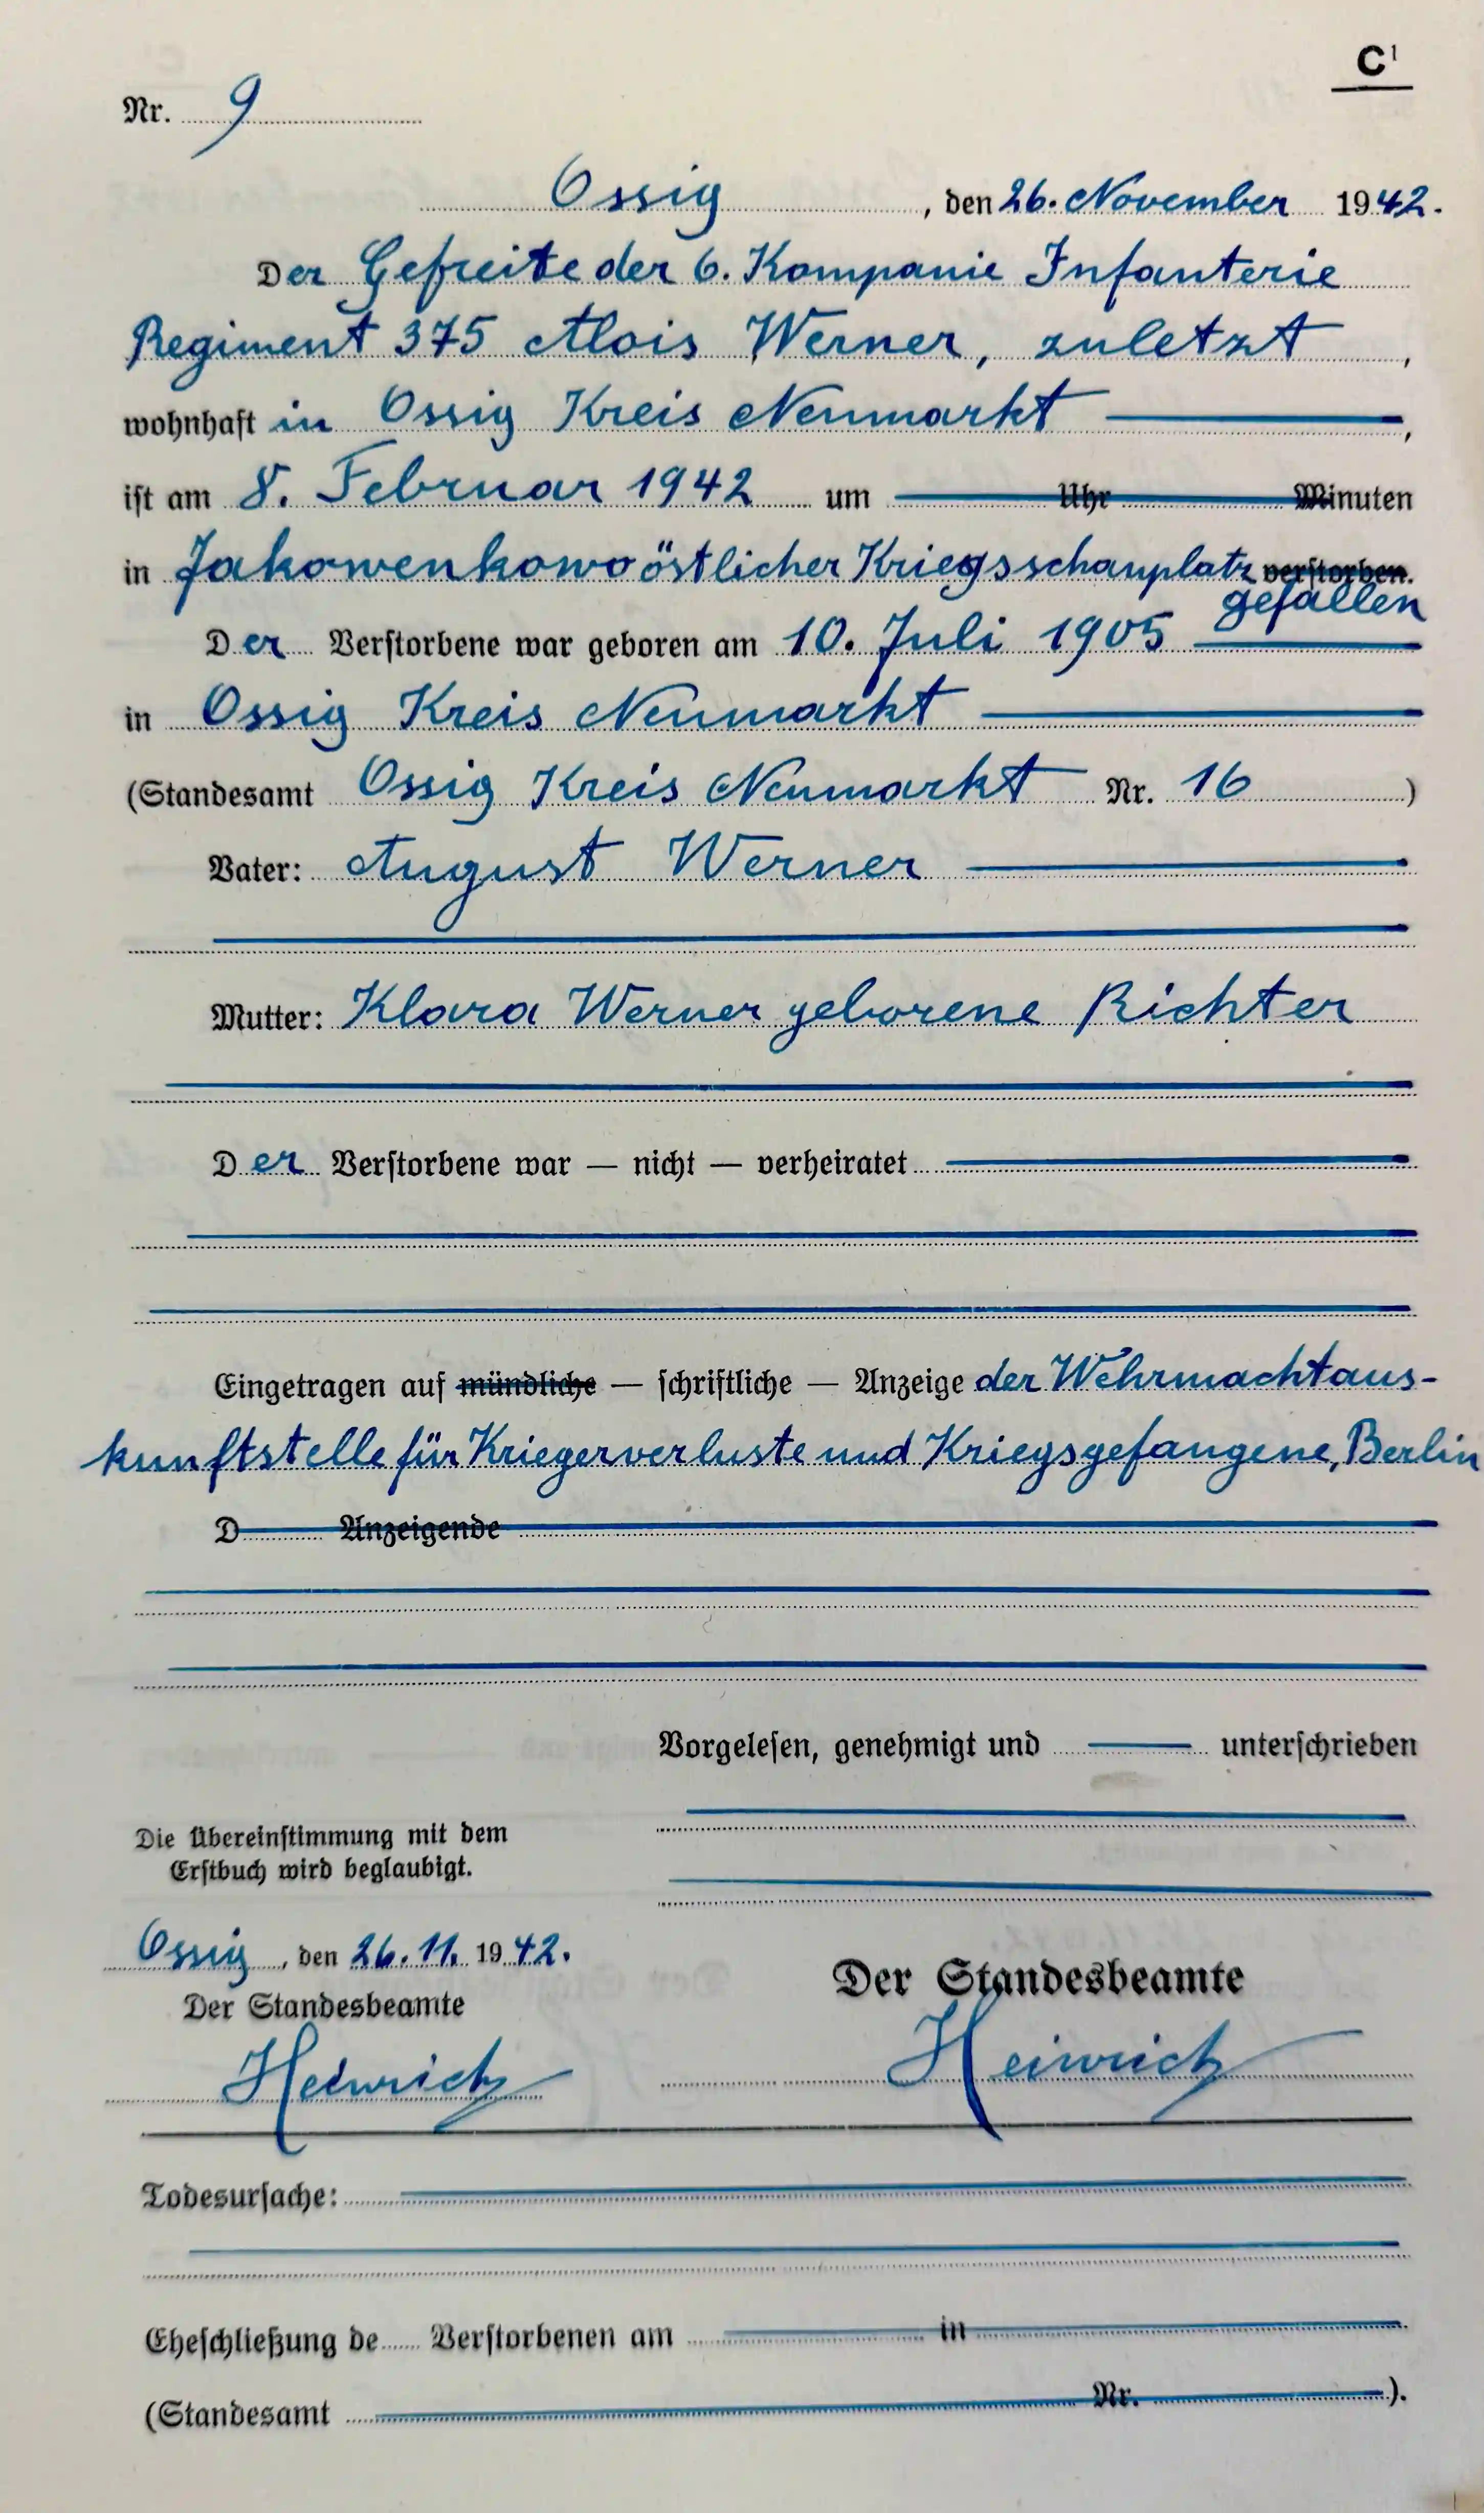 C¹
Nr. 9
Ossig, den 26. November 1942.
Der Gefreite der 6. Kompanie Infanterie
Regiment 375 Alois Werner, zuletzt,
wohnhaft in Ossig Kreis Neumarkt,
ist am 8. Februar 1942 um Uhr Minuten
in Jakowenkowo östlicher Kriegsschauplatz verstorben.
gefallen
Der Verstorbene war geboren am 10. Juli 1905
in Ossig Kreis Neumarkt
(Standesamt Ossig Kreis Neumarkt Nr. 16)
Vater: August Werner
Mutter: Klara Werner geborene Richter
Der Verstorbene war — nicht — verheiratet
Eingetragen auf mündliche — schriftliche — Anzeige der Wehrmachtaus-
kunftstelle für Kriegerverluste und Kriegsgefangene, Berlin
D Anzeigende
Vorgelesen, genehmigt und unterschrieben
Die Übereinstimmung mit dem
Erstbuch wird beglaubigt.
Ossig, den 26.11.1942.
Der Standesbeamte
Heinrich
Der Standesbeamte
Heinrich
Todesursache:
Eheschließung de Verstorbenen am in
(Standesamt Nr. ).